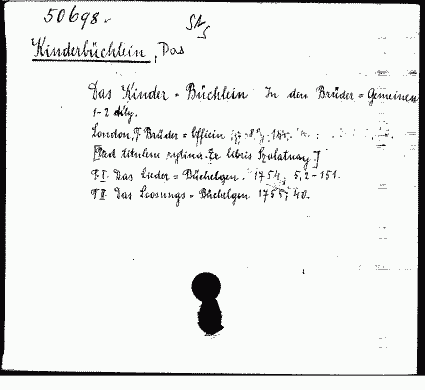 50698.
Kinderbüchlein, Das
Das Kinder = Büchlein In den Brüder = Gemeinen
1-2 díly.
London, Brüder = Officin
[Pod titulem rytina. Ex libris Szalatnay]
P. I. Das Lieder = Büchelgen. 1754, 5, 2-151.
P II. Das Loosungs = Büchelgen 1755, 40.